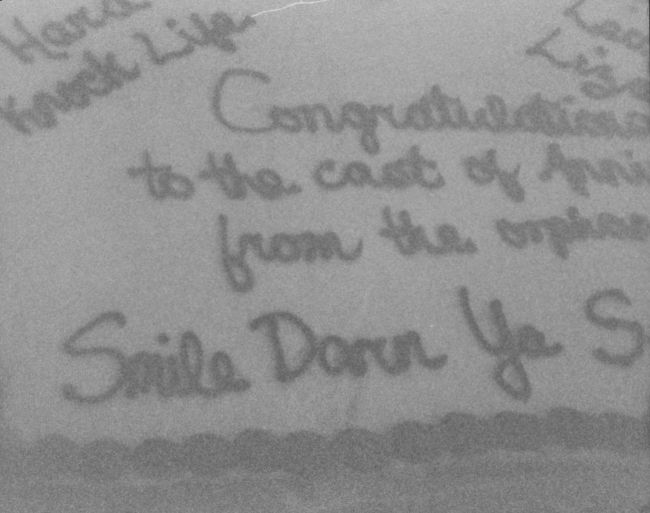 Hard
Knock Life
Congratulations
to the cast of Annie
from the orphan
Smile Darn Ya S